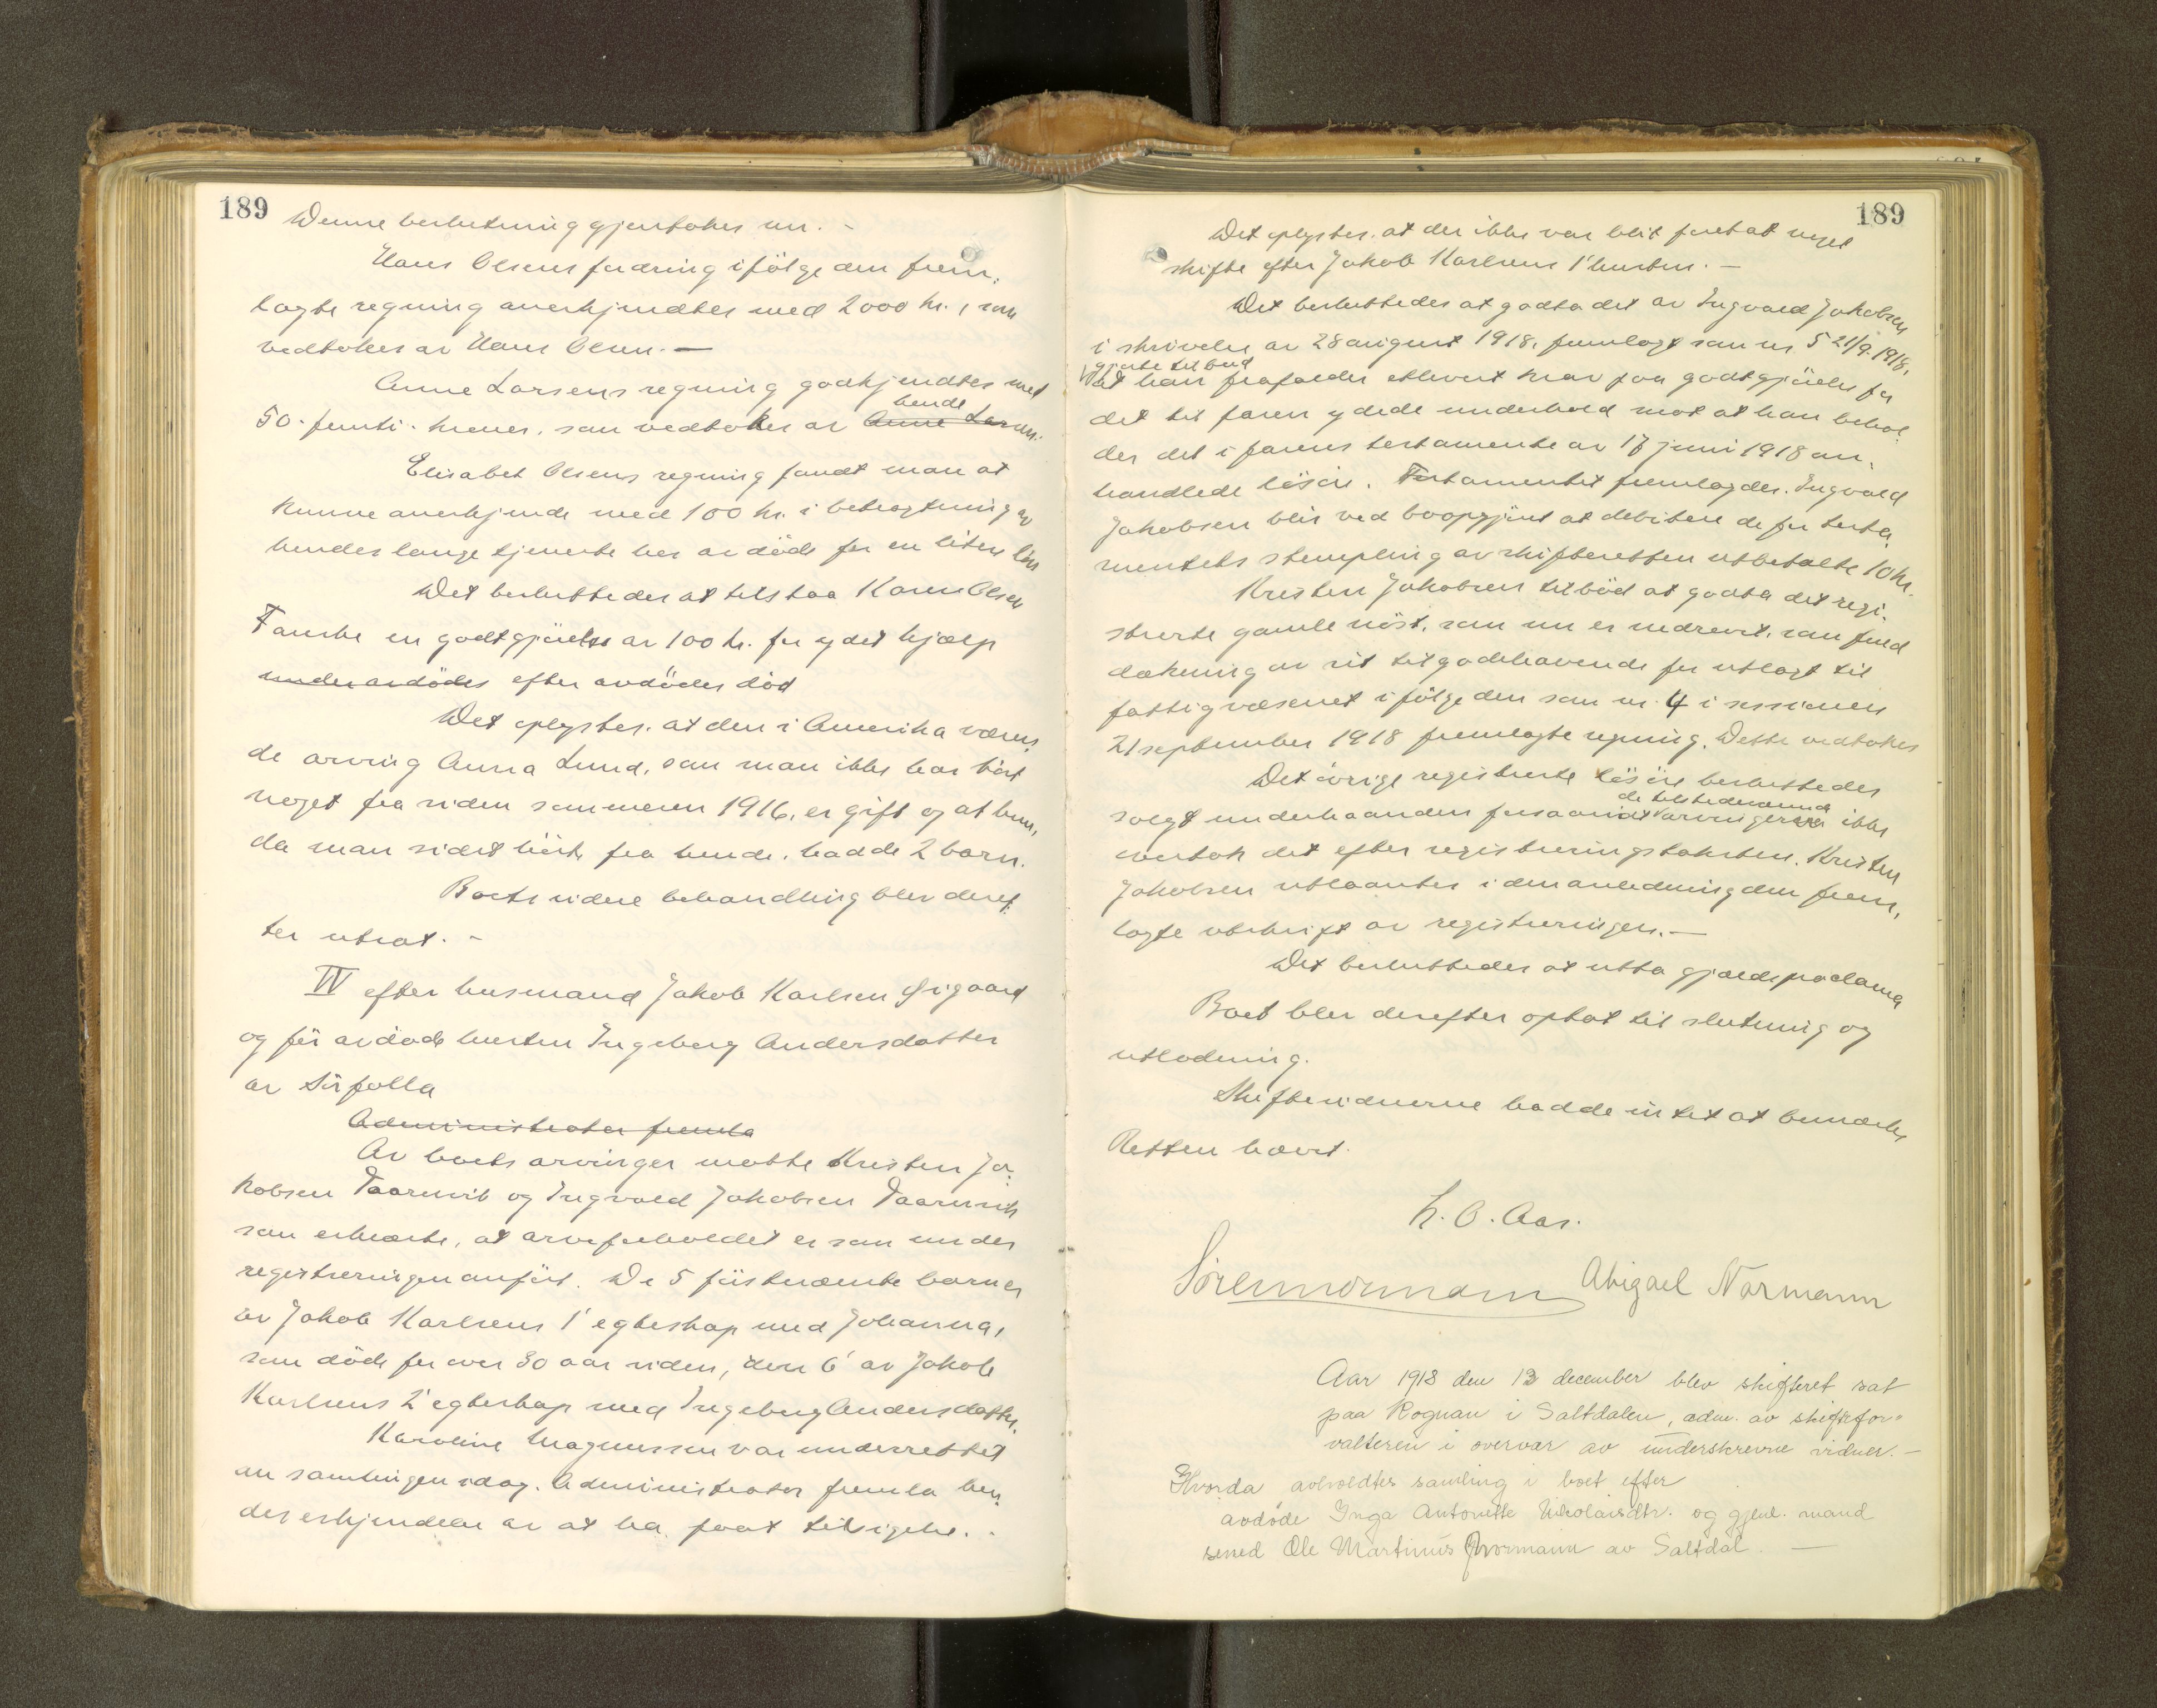 189
Denne beslutning gjentokes nu. -
Hans Olsens fordring ifölge den frem-
lagte regning anerkjendtes med 2000 kr., som
vedtokes av Hans Olsen. —
Anne Larsens regning godkjendtes med
50 - femti - kroner, som vedtokes av Anne Larsen. hende
Elisabet Olsens regning fandt man at
kunne anerkjende med 100 kr. i betragtning av
hendes lange tjeneste hos avdöde for en liten lön
Det besluttedes at tilstaa Karen Olsen
Tamske en godtgjörelse av 100 kr. for ydet hjælp
under avdödes efter avdödes död
Det oplystes, at den i Amerika væren-
de arving Anna Lund, som man ikke har hört
noget fra siden sommeren 1916, er gift og at hun,
da man sidst hörte fra hende, hadde 2 barn.
Boets videre behandling blev deref-
ter utsat. -
IV efter husmand Jakob Karlsen Öigaard
og för avdöde hustru Ingeborg Andersdatter
av Sörfolla
Administrator fremla
Av boets arvinger mötte Kristen Ja-
kobsen Taarnvik og Ingvald Jakobsen Taarnvik
som erklærte, at arveforholdet er som under
registreringen anfört. De 5 förstnævnte barn er
av Jakob Karlsens 1' egteskap med Johanna,
som döde for over 30 aar siden, den 6' av Jakob
Karlsens 2' egteskap med Ingeborg Andersdatter.
Karoline Magnussen var underrettet
om samlingen idag. Administrator fremla hen-
des erkjendelse av at ha faat tilsigelse. -
189
Det oplystes, at der ikke var blit foretat noget
skifte efter Jakob Karlsens 1' hustru. —
Det besluttedes at godta det av Ingvald Jakobsen
i skrivelse av 28 august 1918, fremlagt som nr. 5 21/9. 1918,
gjorte tilbud
at han frafalder ethvert krav paa godtgjörelse for
det til faren ydede underhold mot at han behol-
der det i farens testamente av 17 juni 1918 om-
handlede lösöre. Testamentet fremlagdes. Ingvald
Jakobsen blir ved boopgjöret at debitere de for testa-
mentets stempling av skifteretten utbetalte 10 kr.
Kristen Jakobsen tilböd at godta det regi-
strerte gamle nöst, som nu er nedrevet, som fuld
dækning av sit tilgodehavende for utlagt til
fattigvæsenet ifölge den som nr. 4 i sessionen
21 september 1918 fremlagte regning. Dette vedtokes
Det övrige registrerte lösöre besluttedes
de tilstedeværende
solgt underhaanden forsaavidt arvingerne ikke
overtok det efter registreringstaksten. Kristen
Jakobsen utlaantes i den anledning den frem-
lagte utskrift av registreringen. —
Det besluttedes at utta gjældsproclama
Boet blev derefter optat til slutning og
utlodning.
Skiftevidnerne hadde intet at bemærke
Retten hævet.
H. O. Aas.
Sörennormann Abigael Normann
Aar 1918 den 13 december blev skifteret sat
paa Rognan i Saltdalen, adm. av skiftefor=
valteren i overvær av underskrevne vidner. —
Hvorda avholdtes samling i boet efter
avdöde Inga Antonette Nikolaisdtr. og gjenl. mand
sened Ole Martinus Normann av Saltdal. —